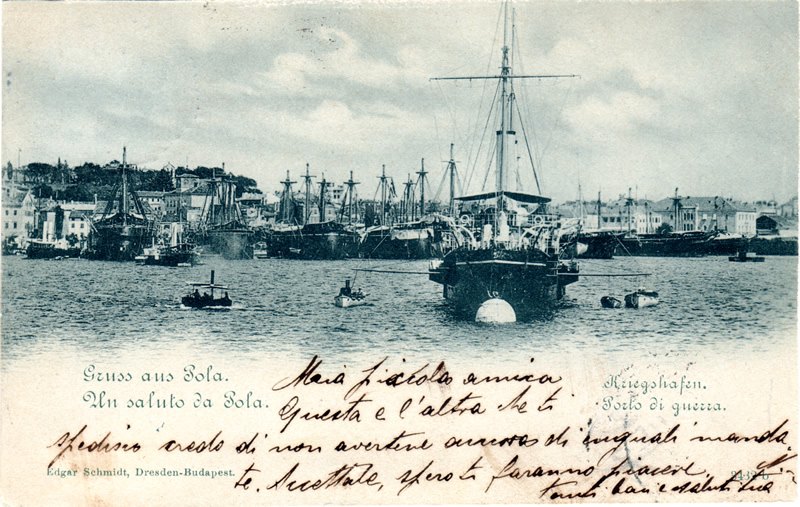 Gruss aus Pola.
Un saluto da Pola.
Kriegshafen.
Porto di guerra.
Mia piccola amica
Questa e l'altra che ti
spedisco credo di non avertene ancora di uguali manda
te. Accettale, spero ti faranno piacere,
tanti baci e saluti tua
Edgar Schmidt, Dresden-Budapest.